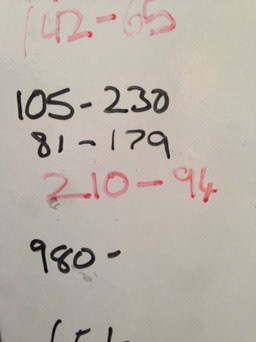 142-65
105-230
81-179
210-94
980-